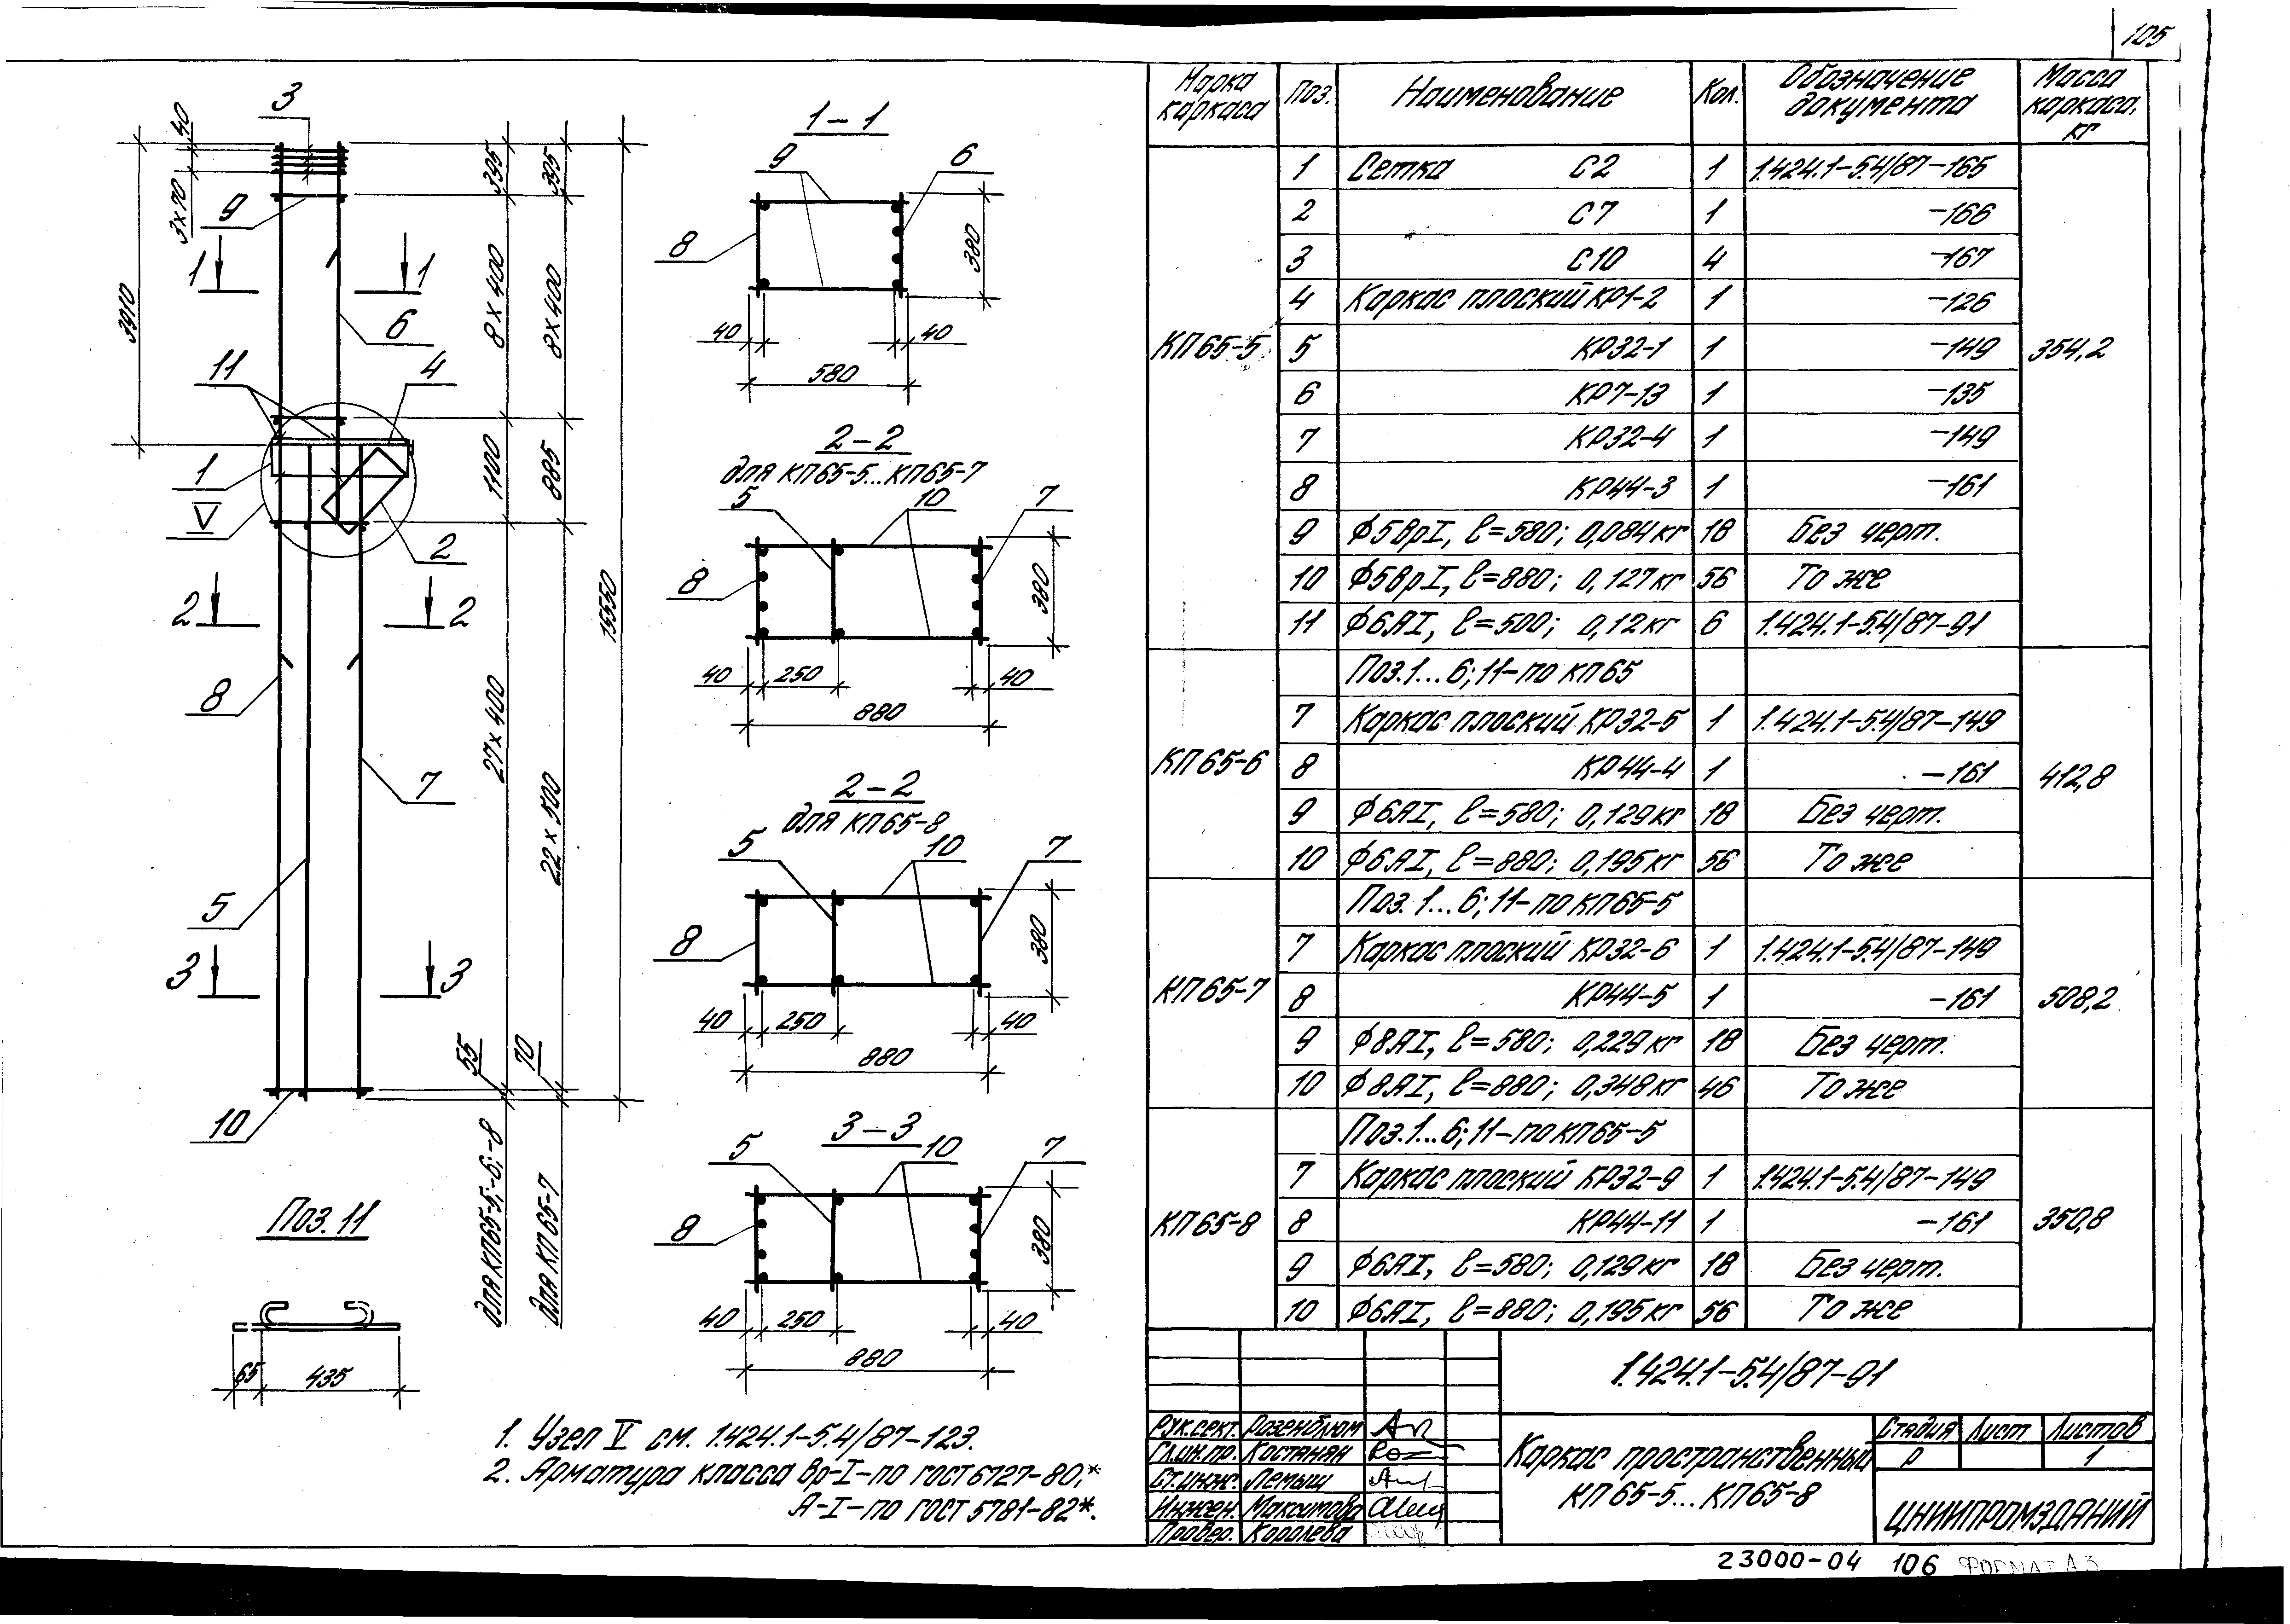 105
3
40
3×70
9
1
1
3910
6
11
4
1
V
2
2
2
8
7
5
3
3
10
395
395
8×400
8×400
1100
885
27×400
22×500
15550
55
70
для КП65-5;-6;-8
для КП65-7
Поз. 11
65
435
1-1
9
6
8
380
40
40
580
2-2
для КП65-5...КП65-7
5
10
7
8
380
40
250
40
880
2-2
для КП65-8
5
10
7
8
380
40
250
40
880
3-3
5
10
7
8
380
40
250
40
880
1. Узел V см. 1.424.1-5.4/87-123.
2. Арматура класса Вр-I-по ГОСТ 6727-80,*
А-I-по ГОСТ 5781-82*.
Марка каркаса Поз. Наименование Кол. Обозначение документа Масса каркаса, кг
КП65-5 354,2
1 Сетка С2 1 1.424.1-5.4/87-165
2 С7 1 -166
3 С10 4 -167
4 Каркас плоский КР1-2 1 -126
5 КР32-1 1 -149
6 КР7-13 1 -135
7 КР32-4 1 -149
8 КР44-3 1 -161
9 Ф5ВрI, l=580; 0,084кг 18 Без черт.
10 Ф5ВрI, l=880; 0,127кг 56 То же
11 Ф6АI, l=500; 0,12кг 6 1.424.1-5.4/87-91
КП65-6 412,8
Поз.1...6;11-по КП65
7 Каркас плоский КР32-5 1 1.424.1-5.4/87-149
8 КР44-4 1 -161
9 Ф6АI, l=580; 0,129кг 18 Без черт.
10 Ф6АI, l=880; 0,195кг 56 То же
КП65-7 508,2
Поз. 1...6;11-по КП65-5
7 Каркас плоский КР32-6 1 1.424.1-5.4/87-149
8 КР44-5 1 -161
9 Ф8АI, l=580; 0,229кг 18 Без черт.
10 Ф8АI, l=880; 0,348кг 46 То же
КП65-8 350,8
Поз.1...6;11-по КП65-5
7 Каркас плоский КР32-9 1 1.424.1-5.4/87-149
8 КР44-11 1 -161
9 Ф6АI, l=580; 0,129кг 18 Без черт.
10 Ф6АI, l=880; 0,195кг 56 То же
1.424.1-5.4/87-91
Рук.сект. Розенблюм
Гл.ин.пр. Костанян
Ст.инж. Лемыш
Инжен. Максимова
Провер. Королева
Каркас пространственный
КП65-5...КП65-8
Стадия Лист Листов
Р 1
ЦНИИПРОМЗДАНИЙ
23000-04 106 ФОРМАТ А3